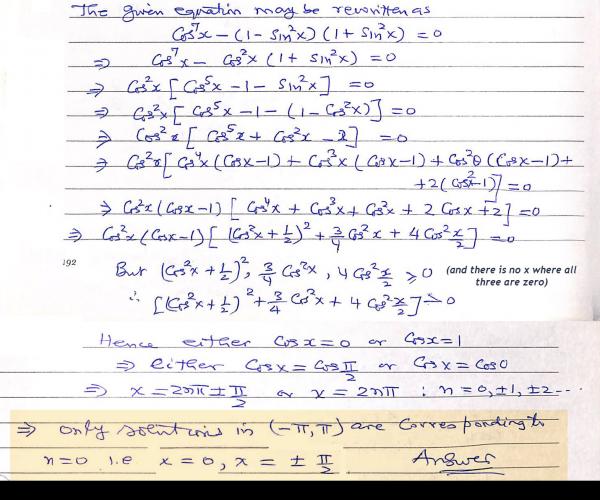 The given equation may be rewritten as
Cos⁷x − (1 − Sin²x) (1 + Sin²x) = 0
⇒ Cos⁷x − Cos²x (1 + Sin²x) = 0
⇒ Cos²x [ Cos⁵x − 1 − Sin²x ] = 0
⇒ Cos²x [ Cos⁵x − 1 − (1 − Cos²x) ] = 0
⇒ Cos²x [ Cos⁵x + Cos²x − 2 ] = 0
⇒ Cos²x [ Cos⁴x (Cosx−1) + Cos³x (Cosx−1) + Cos²θ (Cosx−1) +
+2 (Cos²x−1) ] = 0
⇒ Cos²x (Cosx−1) [ Cos⁴x + Cos³x + Cos²x + 2 Cosx + 2 ] = 0
⇒ Cos²x (Cosx−1) [ (Cos²x + 1/2)² + 3/4 Cos²x + 4 Cos² x/2 ] = 0
192
But (Cos²x + 1/2)², 3/4 Cos²x, 4 Cos² x/2 ⩾ 0 (and there is no x where all three are zero)
∴ [ (Cos²x + 1/2)² + 3/4 Cos²x + 4 Cos² x/2 ] > 0
Hence either Cosx = 0 or Cosx = 1
⇒ either Cosx = Cos π/2 or Cosx = Cos0
⇒ x = 2nπ ± π/2 or x = 2nπ : n = 0, ±1, ±2 ...
⇒ only solutions in (−π, π) are corresponding to
n = 0 i.e x = 0, x = ± π/2 Answer